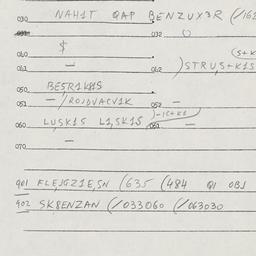 030 NAHIT QAP BENZUY3R (/162
031 032
040 $
041 — 042 )STRUS+K1S
(S+K
050 BE5R1K81S
051 — /ROJDVACV1K 052 —
060 LUSK1S L1,SK1S 061
070 —
901 FLEJGZ1E,SN (635 (484 QI OBJ
902 SK8ENZAN (/033060 (/063030